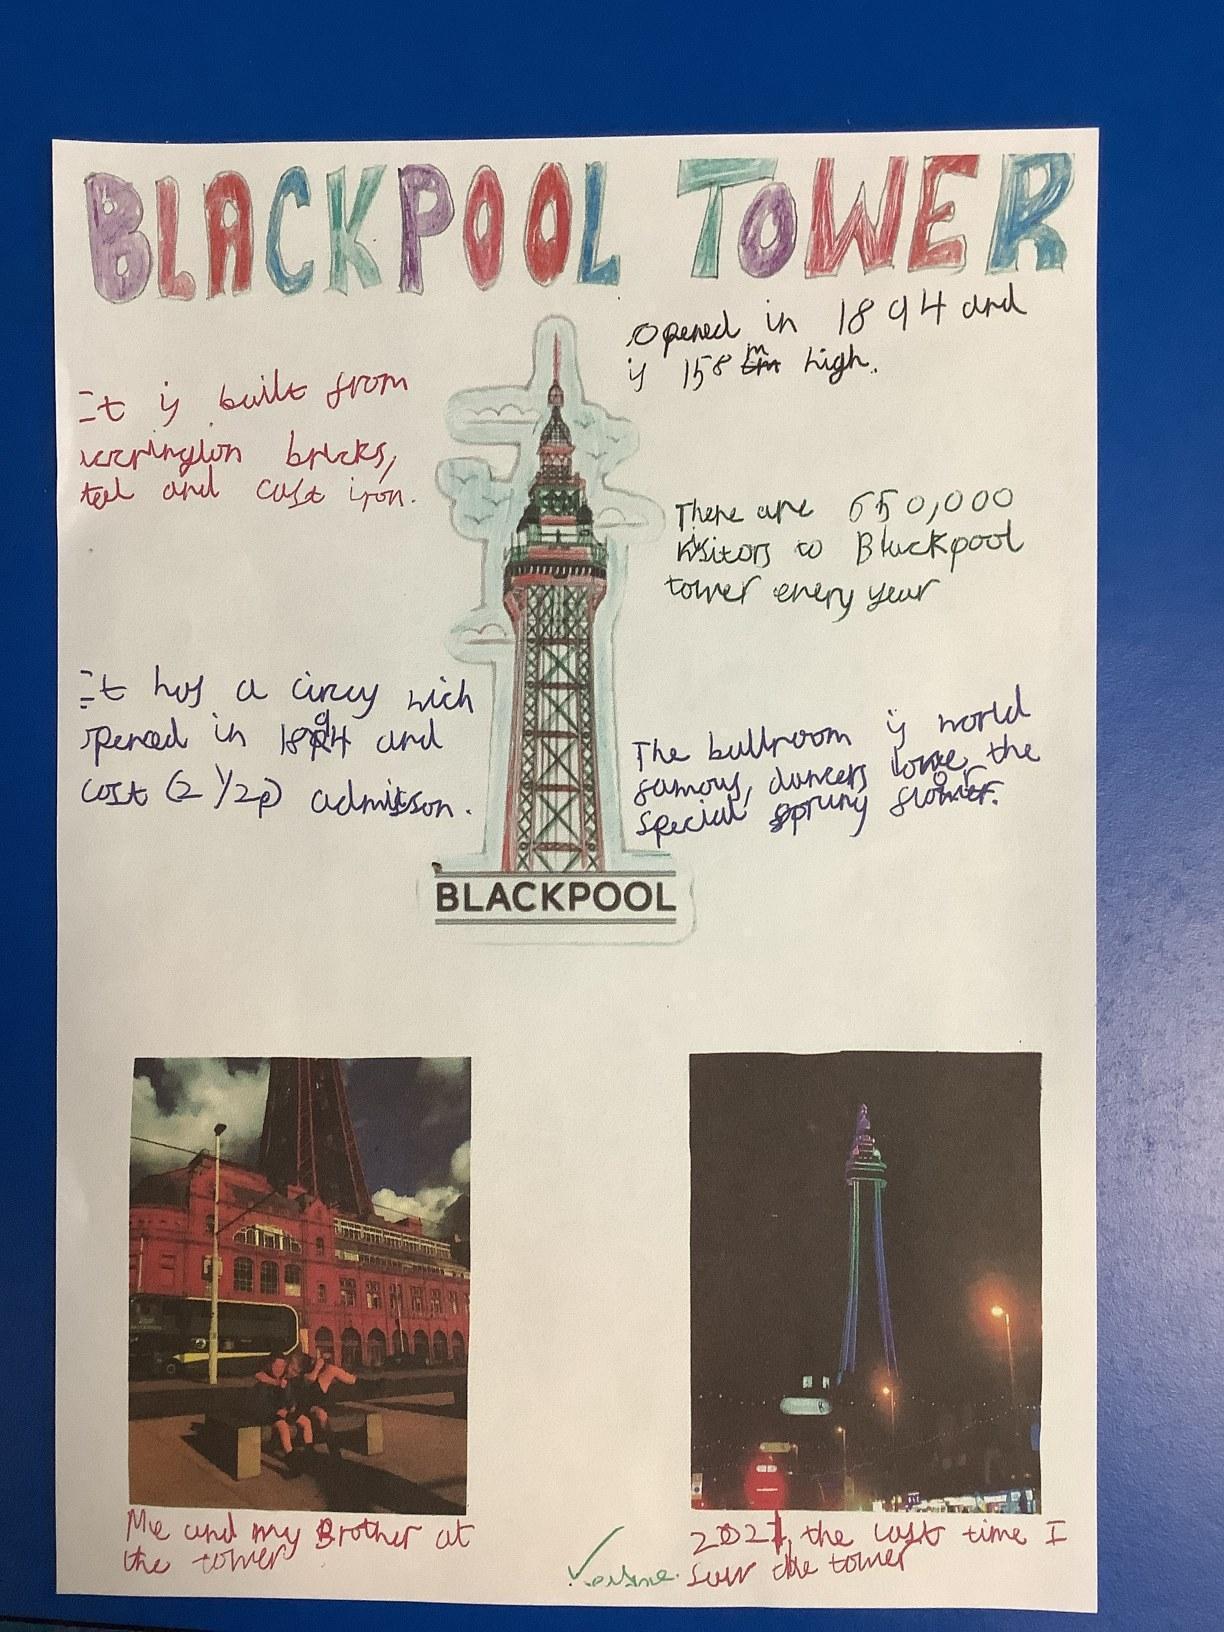 BLACKPOOL TOWER
Opened in 1894 and
is 158 m high.
It is built from
accrington bricks,
steel and cast iron.
There are 650,000
visitors to Blackpool
tower every year
It has a circus wich
opened in 1894 and
cost (2 1/2p) admisson.
The ballroom is world
famous, dancers love the
special sprung floor.
BLACKPOOL
Me and my Brother at
the tower
2021, the last time I
saw the tower